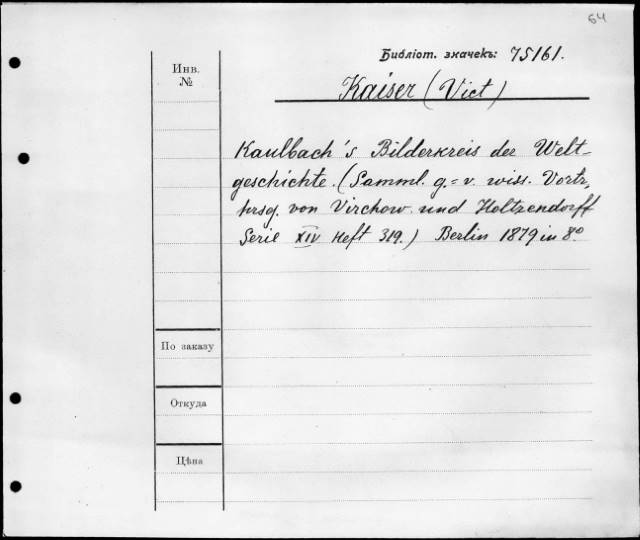 64
Библіот. значекъ: 75161.
Инв.
№
Kaiser (Vict)
Kaulbach's Bilderkreis der Welt-
geschichte. (Samml. g.=v. wiss. Vortr.,
hrsg. von Virchow und Holtzendorff
Serie XIV Heft 319.) Berlin 1879 in 8º
По заказу
Откуда
Цѣна